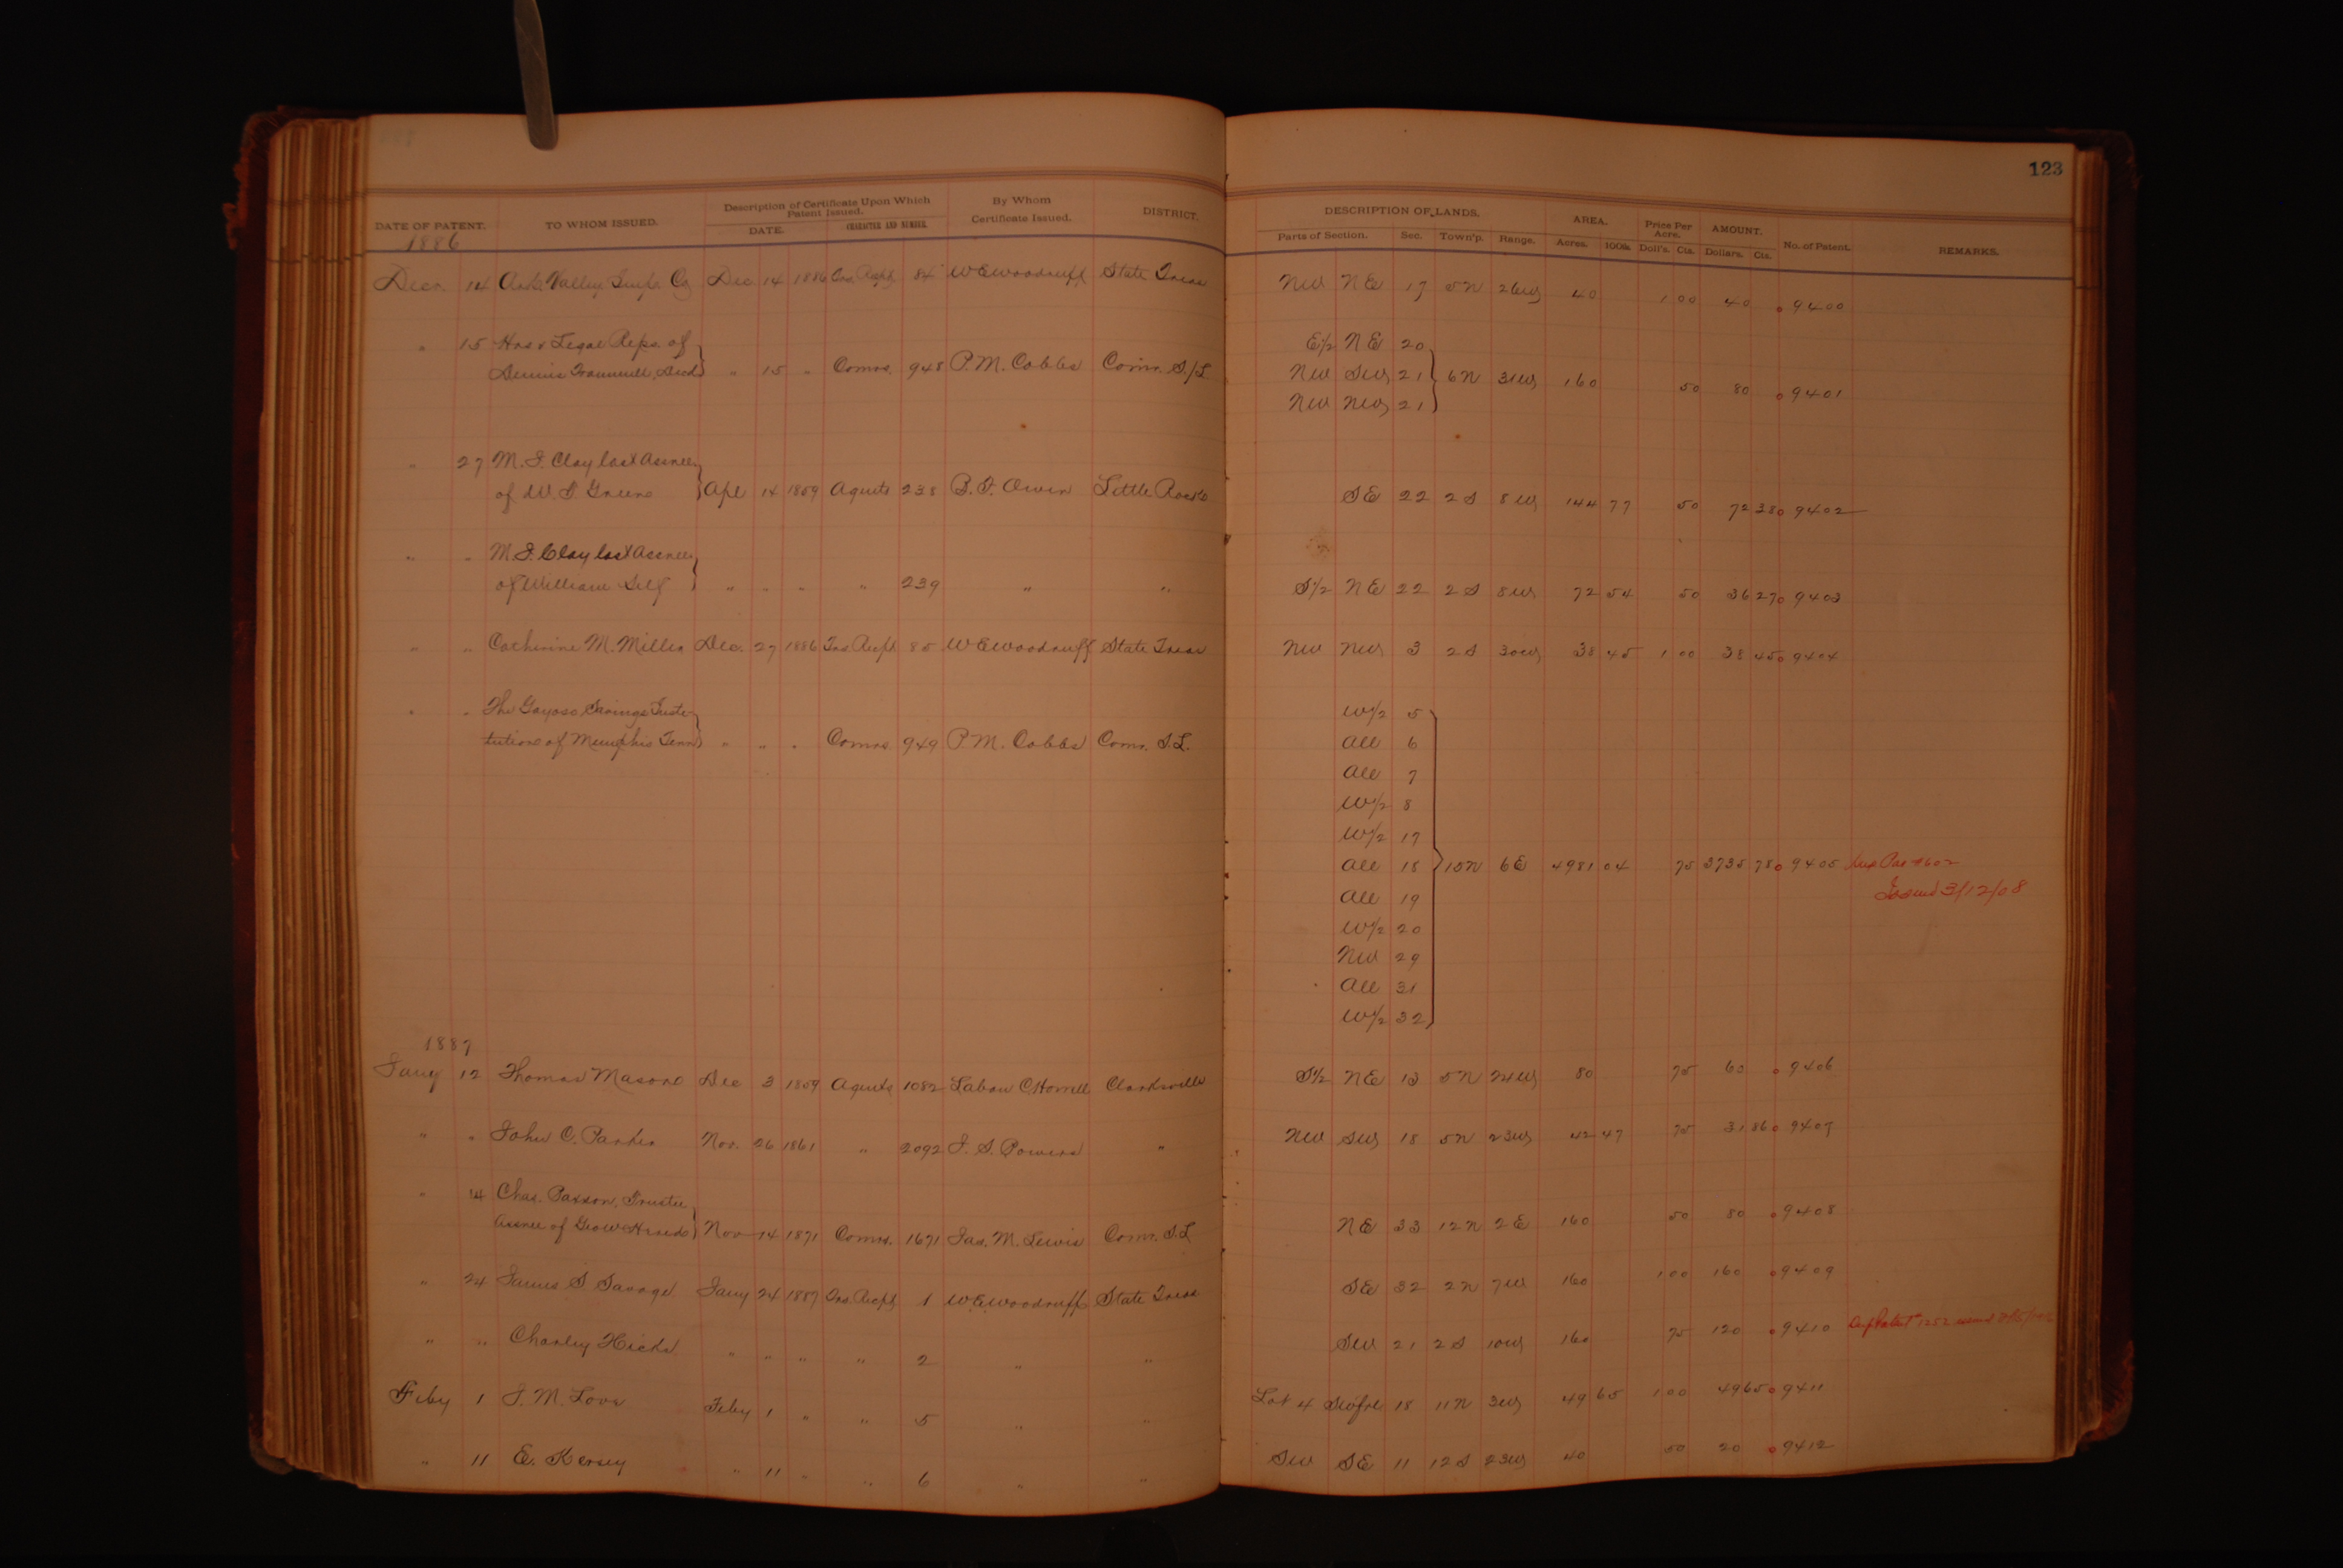 123
DATE OF PATENT. TO WHOM ISSUED. Description of Certificate Upon Which Patent Issued. DATE. CHARACTER AND NUMBER. By Whom Certificate Issued. DISTRICT. DESCRIPTION OF LANDS. Parts of Section. Sec. Town'p. Range. AREA. Acres. 100ths. Price Per Acre. Doll's. Cts. AMOUNT. Dollars. Cts. No. of Patent. REMARKS.
1886
Decr. 14 Ark. Valley Co Dec 14 1886 84 W E Woodruff State Treas NW NE 17 5N 26W 40 1 00 40 9400
" 15 Hrs & Legal Reps. of E½ NE 20
Dennis Trammell, Decd } " 15 " Comrs. 948 P. M. Cobbs Comr. S/L NW SW 21 } 6N 31W 160 50 80 9401
NW NW 21
" 27 M. J. Clay last Assnee
of W. S. Greene } Apl 14 1859 Agents 238 B. F. Owen Little Rock SE 22 2S 8W 144 77 50 72 38 9402
" " M. J. Clay last Assnee
of William Self } " " " " 239 " " S½ NE 22 2S 8W 72 54 50 36 27 9403
" " Catherine M. Miller Dec. 27 1886 Trs Recpt 85 W E Woodruff State Treas NW NW 3 2S 30W 38 45 1 00 38 45 9404
" " The Gayoso Savings Insti- W/2 5
tution of Memphis Tenn } " " " Comrs. 949 P. M. Cobbs Comr. S.L. All 6
All 7
W/2 8
W/2 17
All 18 } 10N 6E 4981 04 75 3735 78 9405 Issued 3/12/08
All 19
W/2 20
NW 29
All 31
W/2 32
1887
Jany 12 Thomas Mason Dec 3 1859 Agents 1082 Laban C Howell Clarksville S½ NE 13 5N 24W 80 75 60 9406
" " John C. Parker Nov. 26 1861 " 2092 J. S. Powers " NW SW 18 5N 23W 42 47 75 31 86 9407
" 14 Chas. Paxson, Trustee
Assnee of Geo W } Nov 14 1871 Comrs. 1671 Jas. M. Lewis Comr. S.L NE 33 12N 2E 160 50 80 9408
" 24 James S Savage Jany 24 1887 Trs. Recpt 1 W E Woodruff State Treas SE 32 2N 7W 160 1 00 160 9409
" " Charley Hicks " " " " 2 " " SW 21 2S 10W 160 75 120 9410
Feby 1 J. M. Love Feby 1 " " 5 " " Lot 4 SW frl 18 11N 3W 49 65 1 00 49 65 9411
" 11 E. Kersey " 11 " " 6 " " SW SE 11 12S 23W 40 50 20 9412